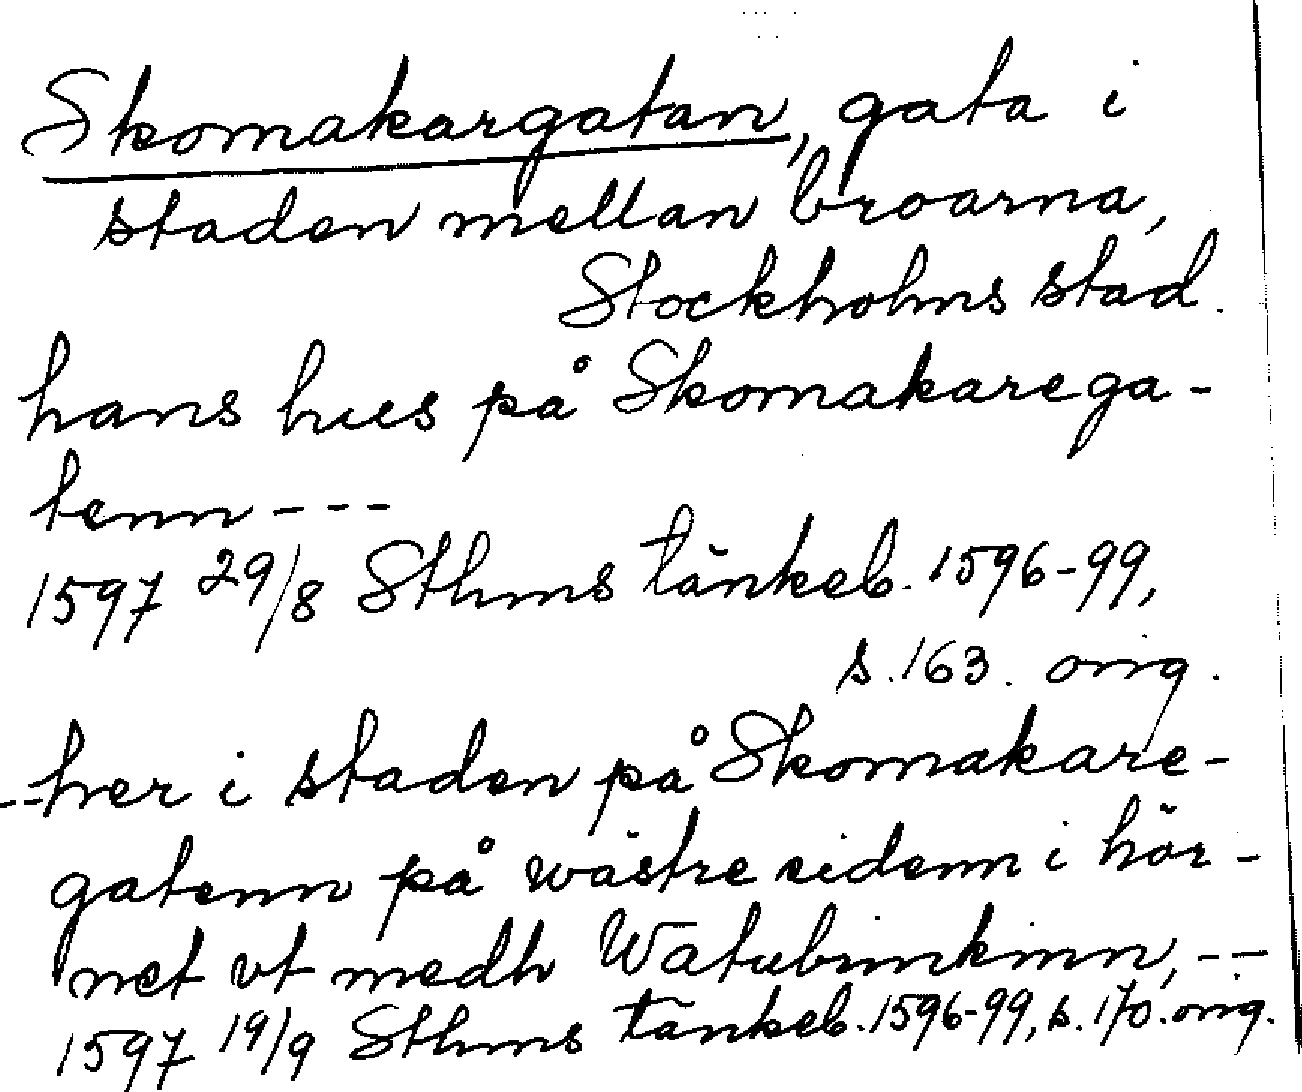 Skomakargatan, gata i
staden mellan broarna,
Stockholms stad.
hans hues på Skomakarega-
tenn---
1597 29/8 Sthms tänkeb. 1596-99,
s. 163. orig.
--her i staden på Skomakare-
gatenn på wästre sidenn i hör-
net vt medh Watubrinkinn, --
1597 19/9 Sthms tänkeb. 1596-99, s. 170. orig.